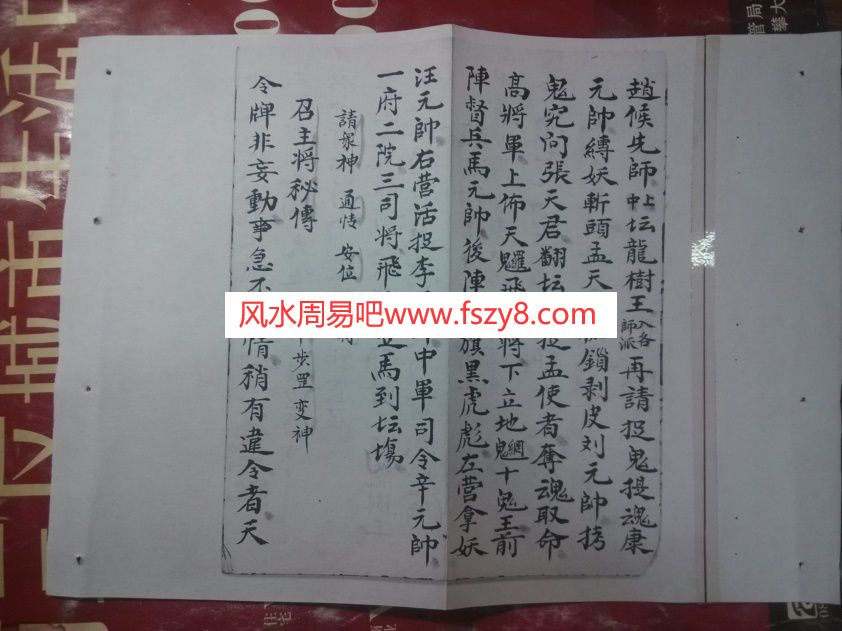 趙候先師上中坛龍樹王入各師派再請捉鬼提魂康
元帥縛妖斬頭孟天鎖剥皮刘元帥拷
鬼究问張天君翻坛捉孟使者奪魂取命
高將軍上佈天飛將下立地十鬼王前
陣督兵馬元帥後陣旗黑虎彪左营拿妖
汪元帥右营活捉李中軍司令辛元帥
一府二院三司將飛馬到坛場
請衆神 通情 安位
召主將秘傳 步罡变神
令牌非妄動事急不情稍有違令者天
风水周易吧www.fszy8.com
城市生活
管局
攀大